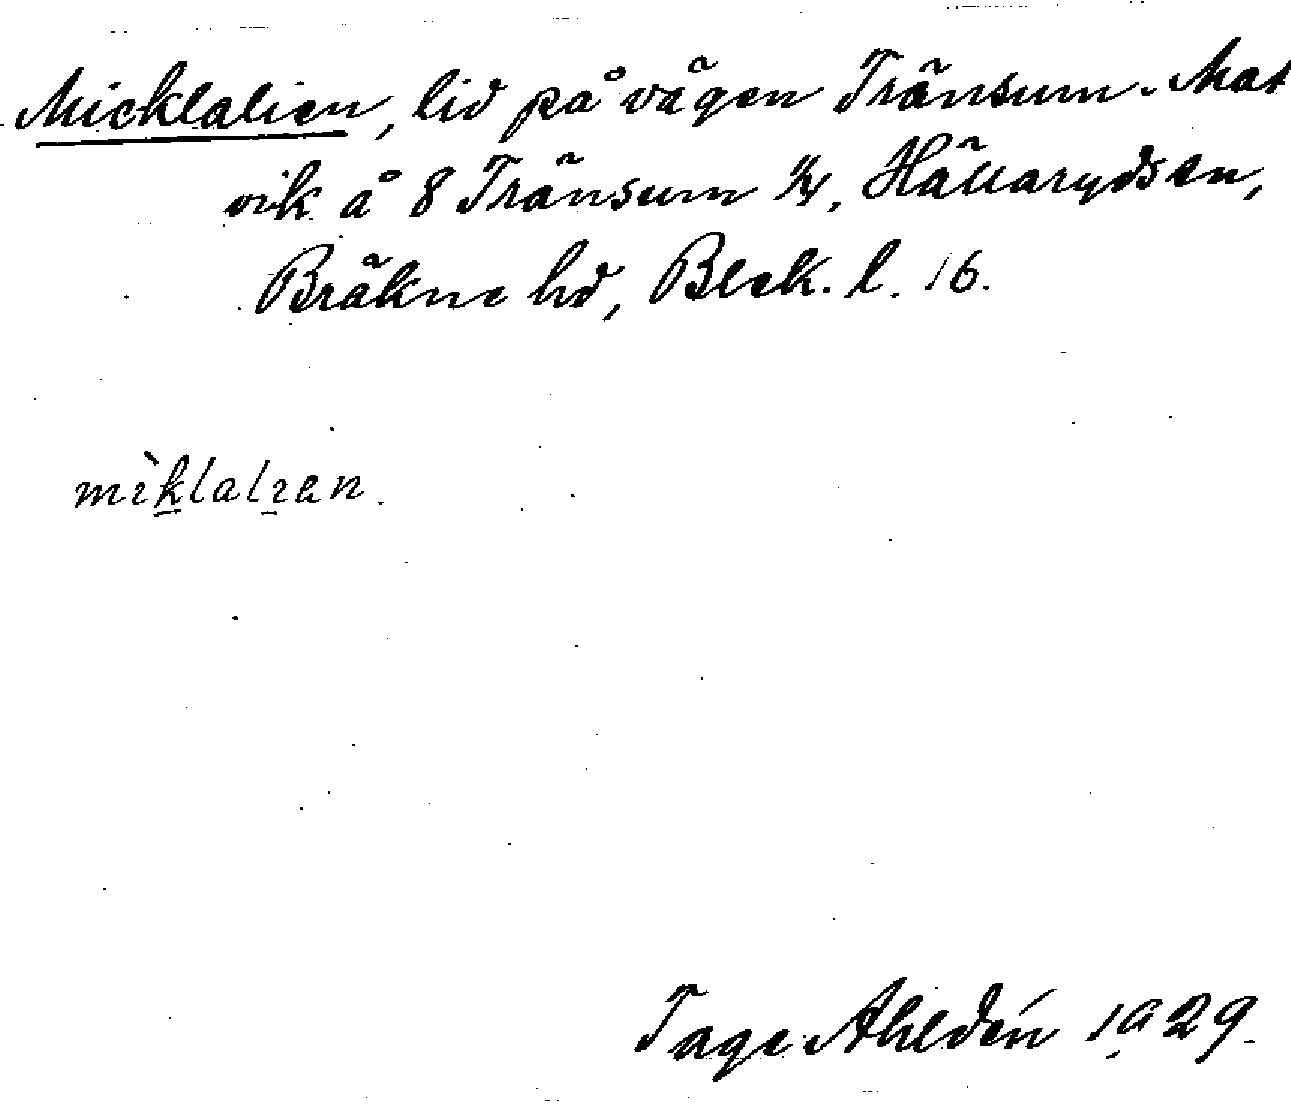 Micklalien, lid på vägen Tränsum - Mat
vik å 8 Tränsum 1/4, Hällaryds sn,
Bräkne hd, Blek. l. 16.
mìklalien.
Tage Ahldén 1929.